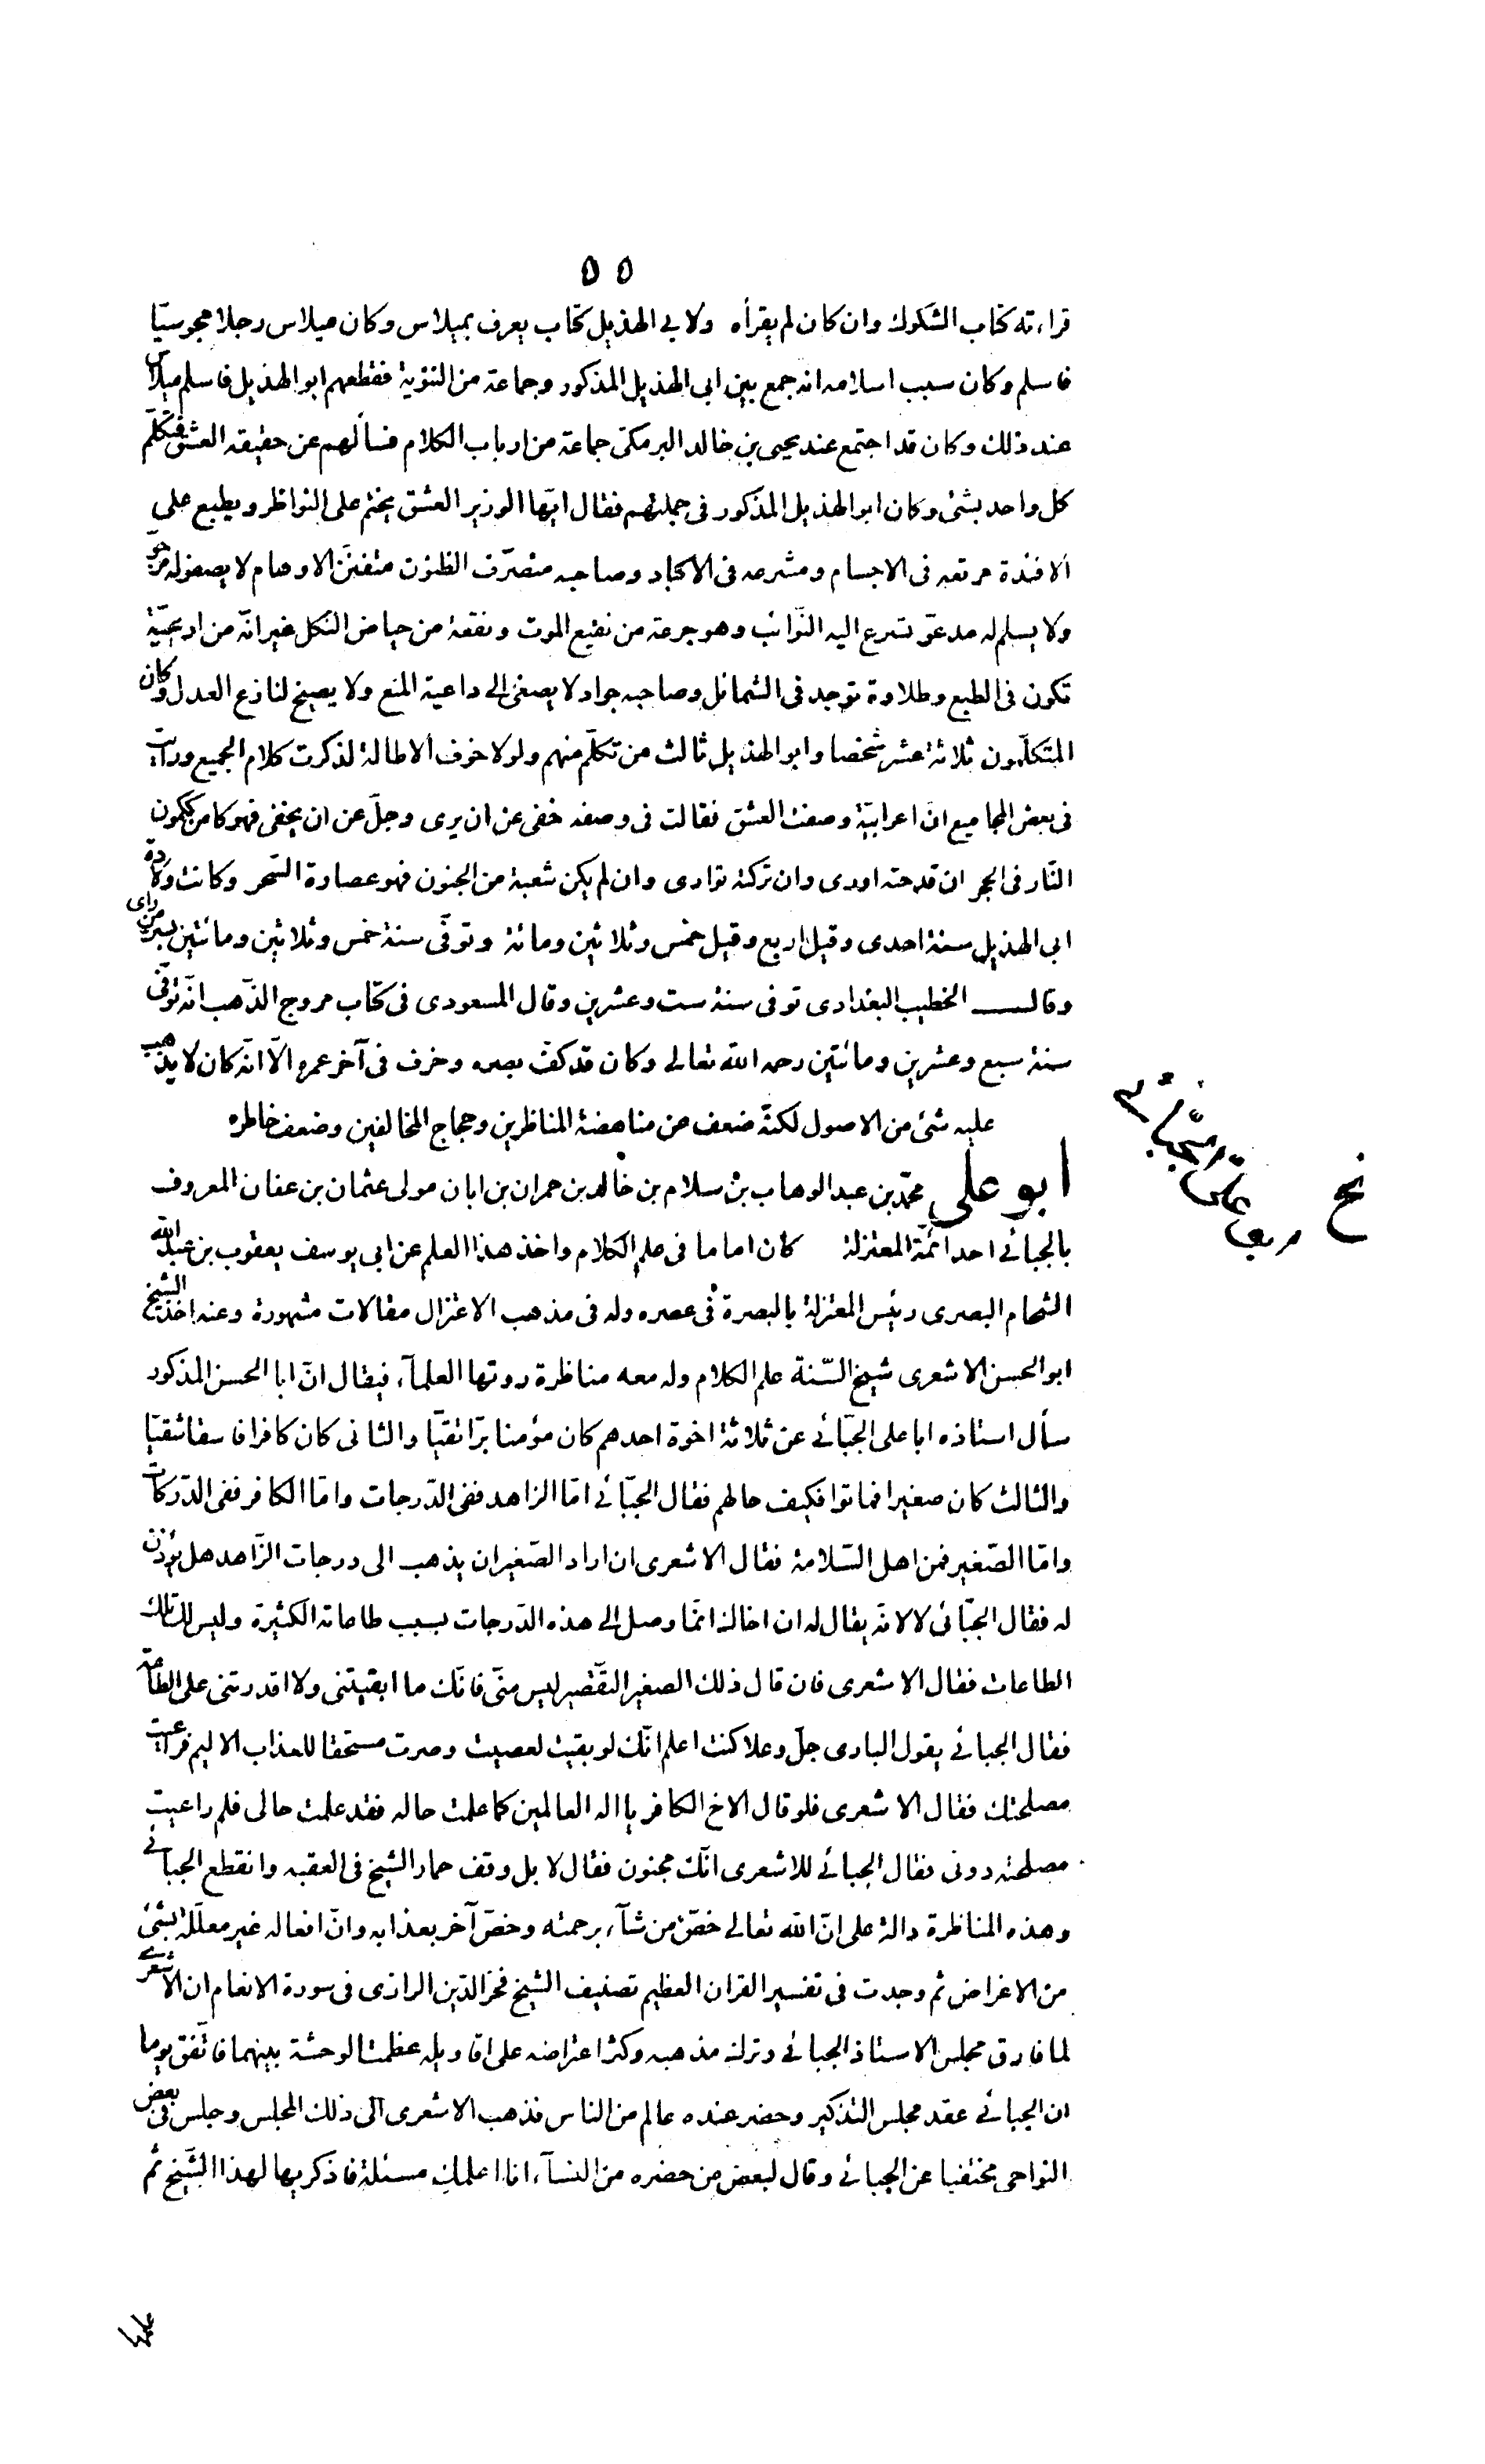 ٥٥
قراءته كتاب الشكوك وان كان لم يقرأه ولابي الهذيل كتاب يعرف بميلاس وكان ميلاس رجلا مجوسيّا
فاسلم وكان سبب اسلامه انه جمع بين ابى الهذيل المذكور وجماعة من الثنوية فقطعهم ابو الهذيل فاسلم ميلاس
عند ذلك وكان قد اجتمع عند يحيى بن خالد البرمكىّ جماعة من ارباب الكلام فسألهم عن حقيقه العشق فتكلّم
كل واحد بشئ وكان ابو الهذيل المذكور فى جملتهم فقال ايّها الوزير العشق يختم على النواظر ويطبع على
الافئدة مرتعه فى الاجسام ومشرعه فى الاكباد وصاحبه متصرّف الظنون متفنّن الاوهام لا يصفوله مرجوّ
ولا يسلم له مدعوّ تسرع اليه النّوائب وهو جرعة من نقيع الموت ونقعة من حياض الثكل غير انّه من اريحيّة
تكون فى الطبع وطلاوة توجد فى الشمائل وصاحبه جواد لا يصغى الى داعية المنع ولا يصيخ لنازع العدل وكان
المتكلّمون ثلاثة عشر شخصا وابو الهذيل ثالث من تكلّم منهم ولولا خوف الاطالة لذكرت كلام الجميع ورايت
فى بعض المجاميع انّ اعرابيّة وصفت العشق فقالت فى وصفه خفى عن ان يرى وجلّ عن ان يخفى فهو كامن ككمون
النّار فى الحجر ان قدحته اورى وان تركته توارى وان لم يكن شعبة من الجنون فهو عصارة السّحر وكانت ولادة
ابى الهذيل سنة احدى وقيل اربع وقيل خمس وثلاثين ومائة وتوفّى سنة خمس وثلاثين ومائتين بسر من راى
وقال الخطيب البغدادى توفى سنة ست وعشرين وقال المسعودى فى كتاب مروج الذّهب انّه توفّى
سنة سبع وعشرين ومائتين رحمه الله تعالى وكان قد كفّ بصره وخرف فى آخر عمره الّا انّه كان لا يذهب
عليه شئ من الاصول لكنّه ضعف عن مناهضة المناظرين وحجاج المخالفين وضعف خاطره
ابو على محمّد بن عبد الوهاب بن سلام بن خالد بن حمران بن ابان مولى عثمان بن عفان المعروف
بالجبائى احد ائمّة المعتزلة كان اماما فى علم الكلام واخذ هذا العلم عن ابى يوسف يعقوب بن عبد الله
الشحام البصرى رئيس المعتزلة بالبصرة فى عصره وله فى مذهب الاعتزال مقالات مشهورة وعنه اخذ الشيخ
ابو الحسن الاشعرى شيخ السّنة علم الكلام وله معه مناظرة روتها العلمآء فيقال انّ ابا الحسن المذكور
سأل استاذه ابا على الجبّائى عن ثلاثة اخوة احدهم كان مؤمنا برّا تقيّا والثانى كان كافرا فاسقا شقيّا
والثالث كان صغيرا فماتوا فكيف حالهم فقال الجبّائى امّا الزاهد ففى الدّرجات وامّا الكافر ففى الدّركات
وامّا الصّغير فمن اهل السّلامة فقال الاشعرى ان اراد الصّغير ان يذهب الى درجات الزّاهد هل يؤذن
له فقال الجبّائى لا لانّه يقال له ان اخاك انّما وصل الى هذه الدّرجات بسبب طاعاته الكثيرة وليس لك تلك
الطاعات فقال الاشعرى فان قال ذلك الصغير التّقصير ليس منّى فانّك ما ابقيتنى ولا اقدرتنى على الطاعة
فقال الجبائى يقول البارى جلّ وعلا كنت اعلم انّك لو بقيت لعصيت وصرت مستحقا للعذاب الاليم فراعيت
مصلحتك فقال الاشعرى فلو قال الاخ الكافر يا اله العالمين كما علمت حاله فقد علمت حالى فلم راعيت
مصلحته دونى فقال الجبائى للاشعرى انّك مجنون فقال لا بل وقف حمار الشيخ فى العقبه وانقطع الجبائى
وهذه المناظرة دالة على انّ الله تعالى خصّ من شآء برحمته وخصّ آخر بعذابه وانّ افعاله غير معلّلة بشئ
من الاغراض ثم وجدت فى تفسير القران العظيم تصنيف الشيخ فخر الدّين الرازى فى سورة الانعام ان الاشعرى
لما فارق مجلس الاستاذ الجبائى وترك مذهبه وكثر اعتراضه على اقاويله عظمت الوحشة بينهما فاتّفق يوما
ان الجبائى عقد مجلس التذكير وحضر عنده عالم من الناس فذهب الاشعرى الى ذلك المجلس وجلس فى بعض
النواحى مختفيا عن الجبائى وقال لبعض من حضره من النسآء انا اعلمك مسئلة فاذكريها لهذا الشّيخ ثم